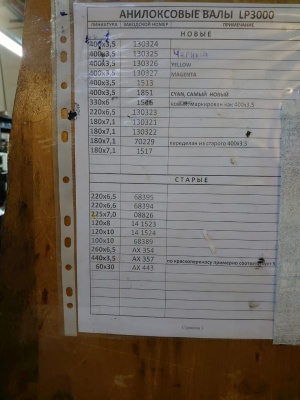 АНИЛОКСОВЫЕ ВАЛЫ LP3000
ЛИНИАТУРА ЗАВОДСКОЙ НОМЕР ПРИМЕЧАНИЕ
НОВЫЕ
400x3,5 130324
400x3,5 130325
400x3,5 130326 YELLOW
400x3,5 130327 MAGENTA
400x3,5 1513
400x3,5 1851 CYAN, САМЫЙ НОВЫЙ
330x6 маркирован как 400x3,5
220x6,5 130323
180x7,1 130321
180x7,1 130322
180x7,1 70229 переделан из старого 400x3,5
180x7,1 1517
СТАРЫЕ
220x6,5 68395
220x6,6 68394
225x7,0 08826
120x8 14 1523
120x10 14 1524
100x10 68389
260x6,5 AX 354
440x3,5 AX 357 по краскопереносу примерно соответствует
60x30 AX 443